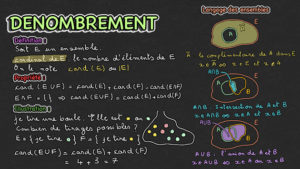 DENOMBREMENT
Définition :
Soit E un ensemble.
cardinal de E : le nombre d'éléments de E
On le note card(E) ou |E|
Propriété :
card(E∪F) = card(E) + card(F) - card(E∩F)
E∩F = {} ⇒ card(E∪F) = card(E) + card(F)
Illustration :
Je tire une boule. Elle est ou
Combien de tirages possibles ?
E = { je tire } F = { je tire }
card(E∪F) = card(E) + card(F)
= 4 + 3 = 7
Langage des ensembles
A
E
Ā : le complémentaire de A dans E
A∩B
A
B
E
A∩B : Intersection de A et B
x ∈ A∩B ⇔ x ∈ A et x ∈ B
A∪B
A
B
A∪B : l'union de A et B
x ∈ A∪B ⇔ x ∈ A ou x ∈ B